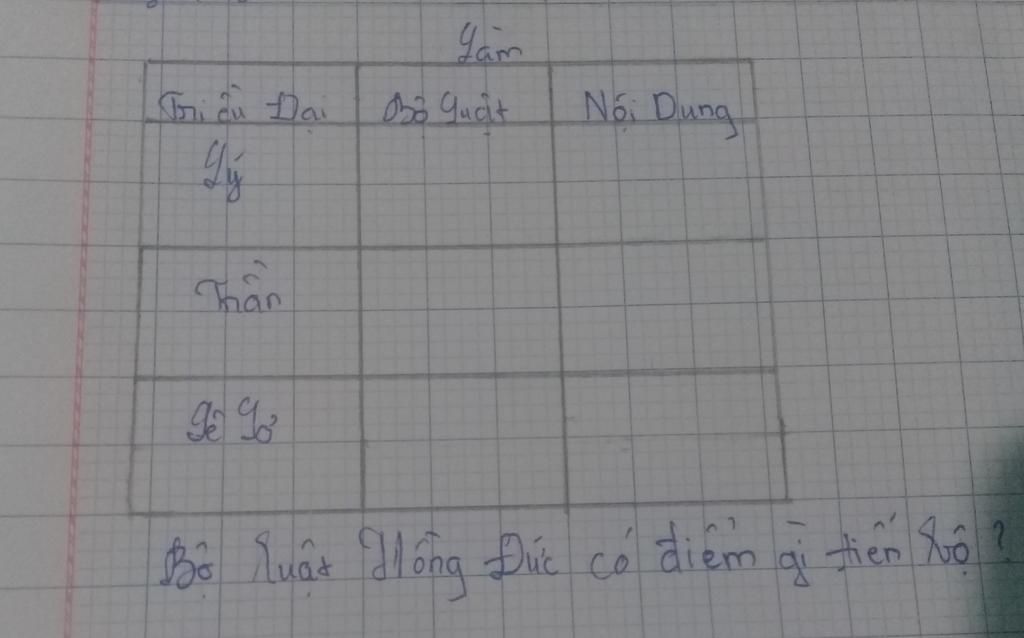 Làm
Triều Đại Bộ Luật Nội Dung
Lý
Trần
Lê Lơ
Bộ luật Hồng Đức có điểm gì tiến bộ?